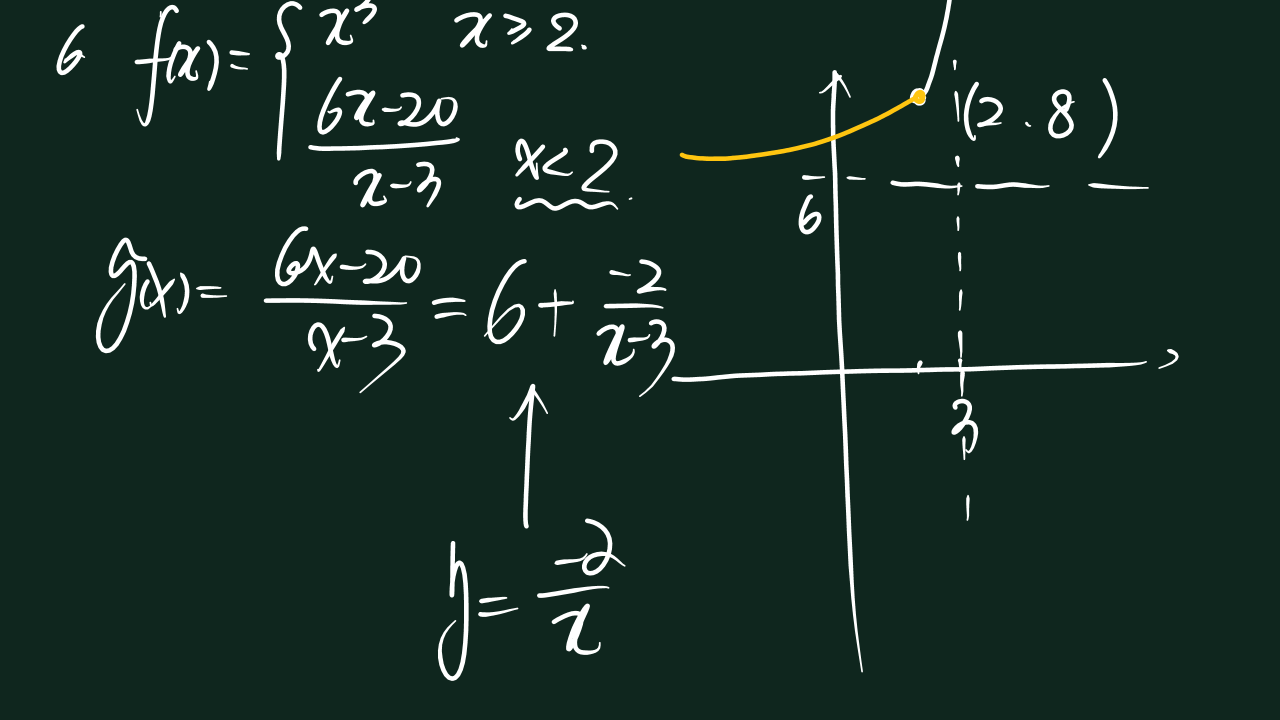 6 f(x)= { x³ x≥2.
(6x-20)/(x-3) x<2.
g(x)= (6x-20)/(x-3) = 6+ (-2)/(x-3)
y= (-2)/x
(2.8)
6
3